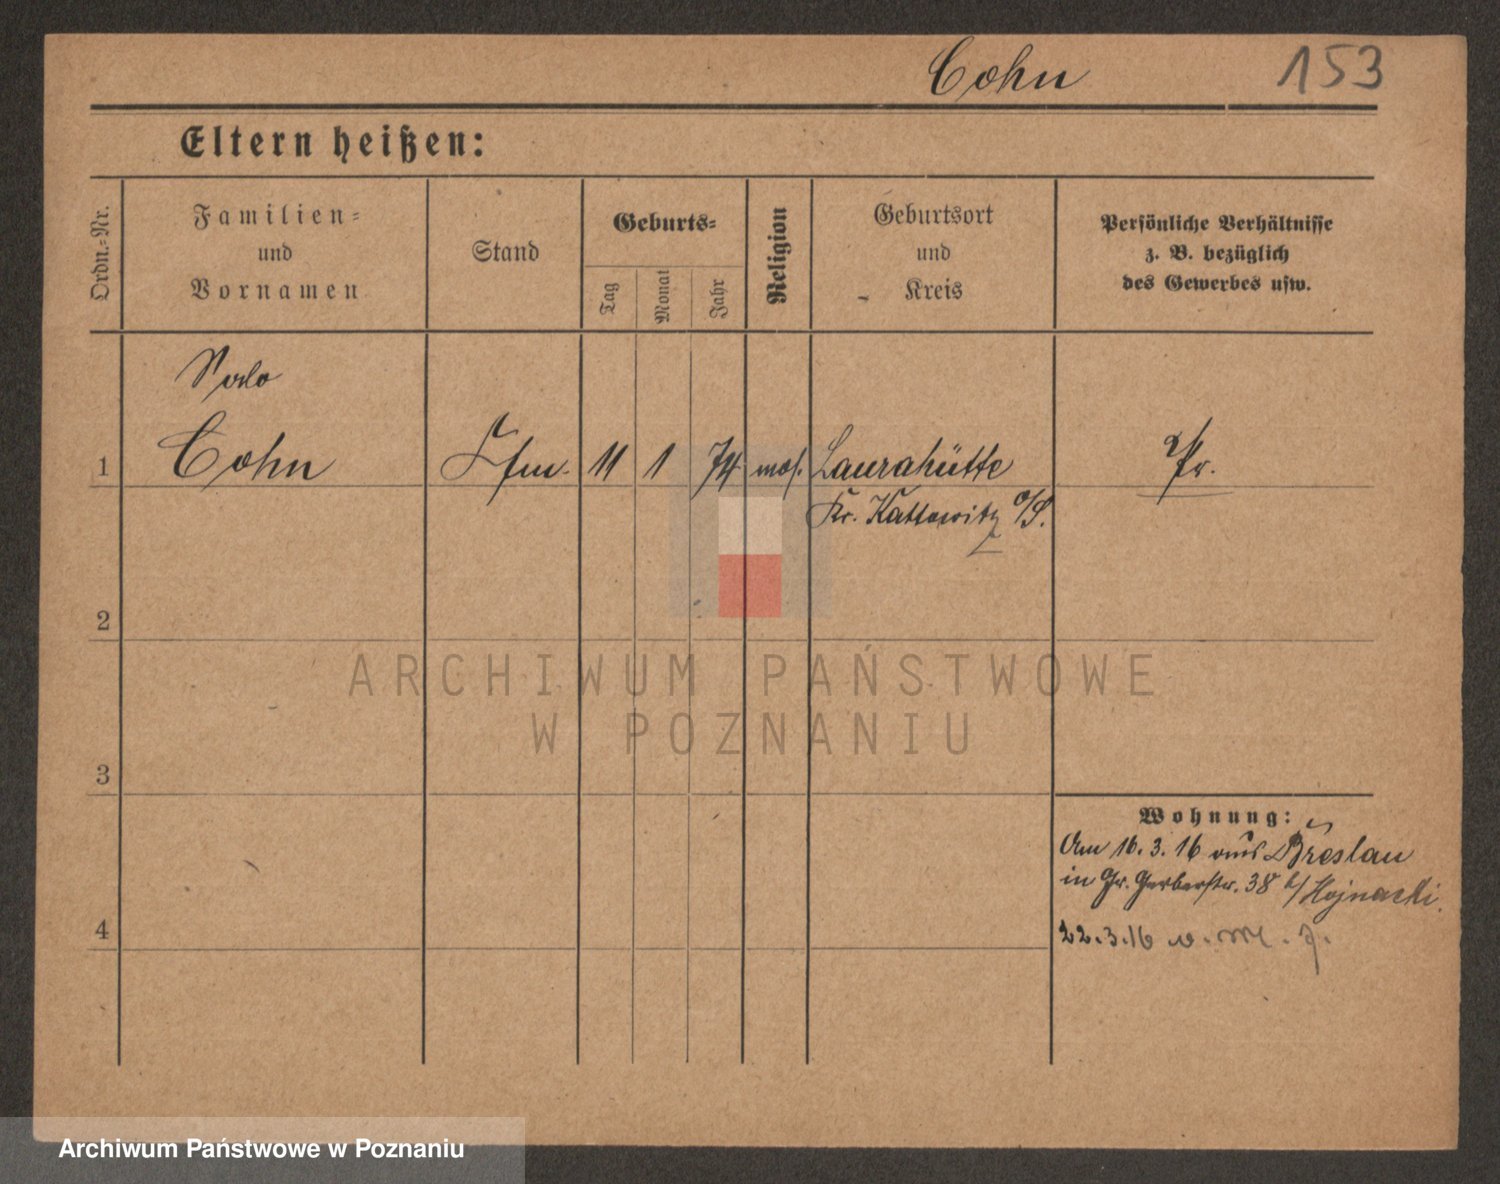 Cohn 153
Eltern heißen:
Ordn.=Nr.
Familien=
und
Vornamen
Stand
Geburts=
Tag
Monat
Jahr
Religion
Geburtsort
und
Kreis
Persönliche Verhältnisse
z. B. bezüglich
des Gewerbes usw.
Salo
1 Cohn Kfm. 11 1 74 mos. Laurahütte Pr.
Kr. Kattowitz O/S.
2
3
4
Wohnung:
Am 16. 3. 16 aus Breslau
in Gr. Gerberstr. 38 b/ Hojnacki.
22.3.16
ARCHIWUM PAŃSTWOWE
W POZNANIU
Archiwum Państwowe w Poznaniu